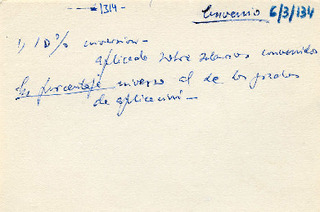 —1314—
Convenio 6/3/134
1) 10% inversion—
aplicado sobre salarios convenidos
En porcentaje inverso al de los grados
de aplicación—